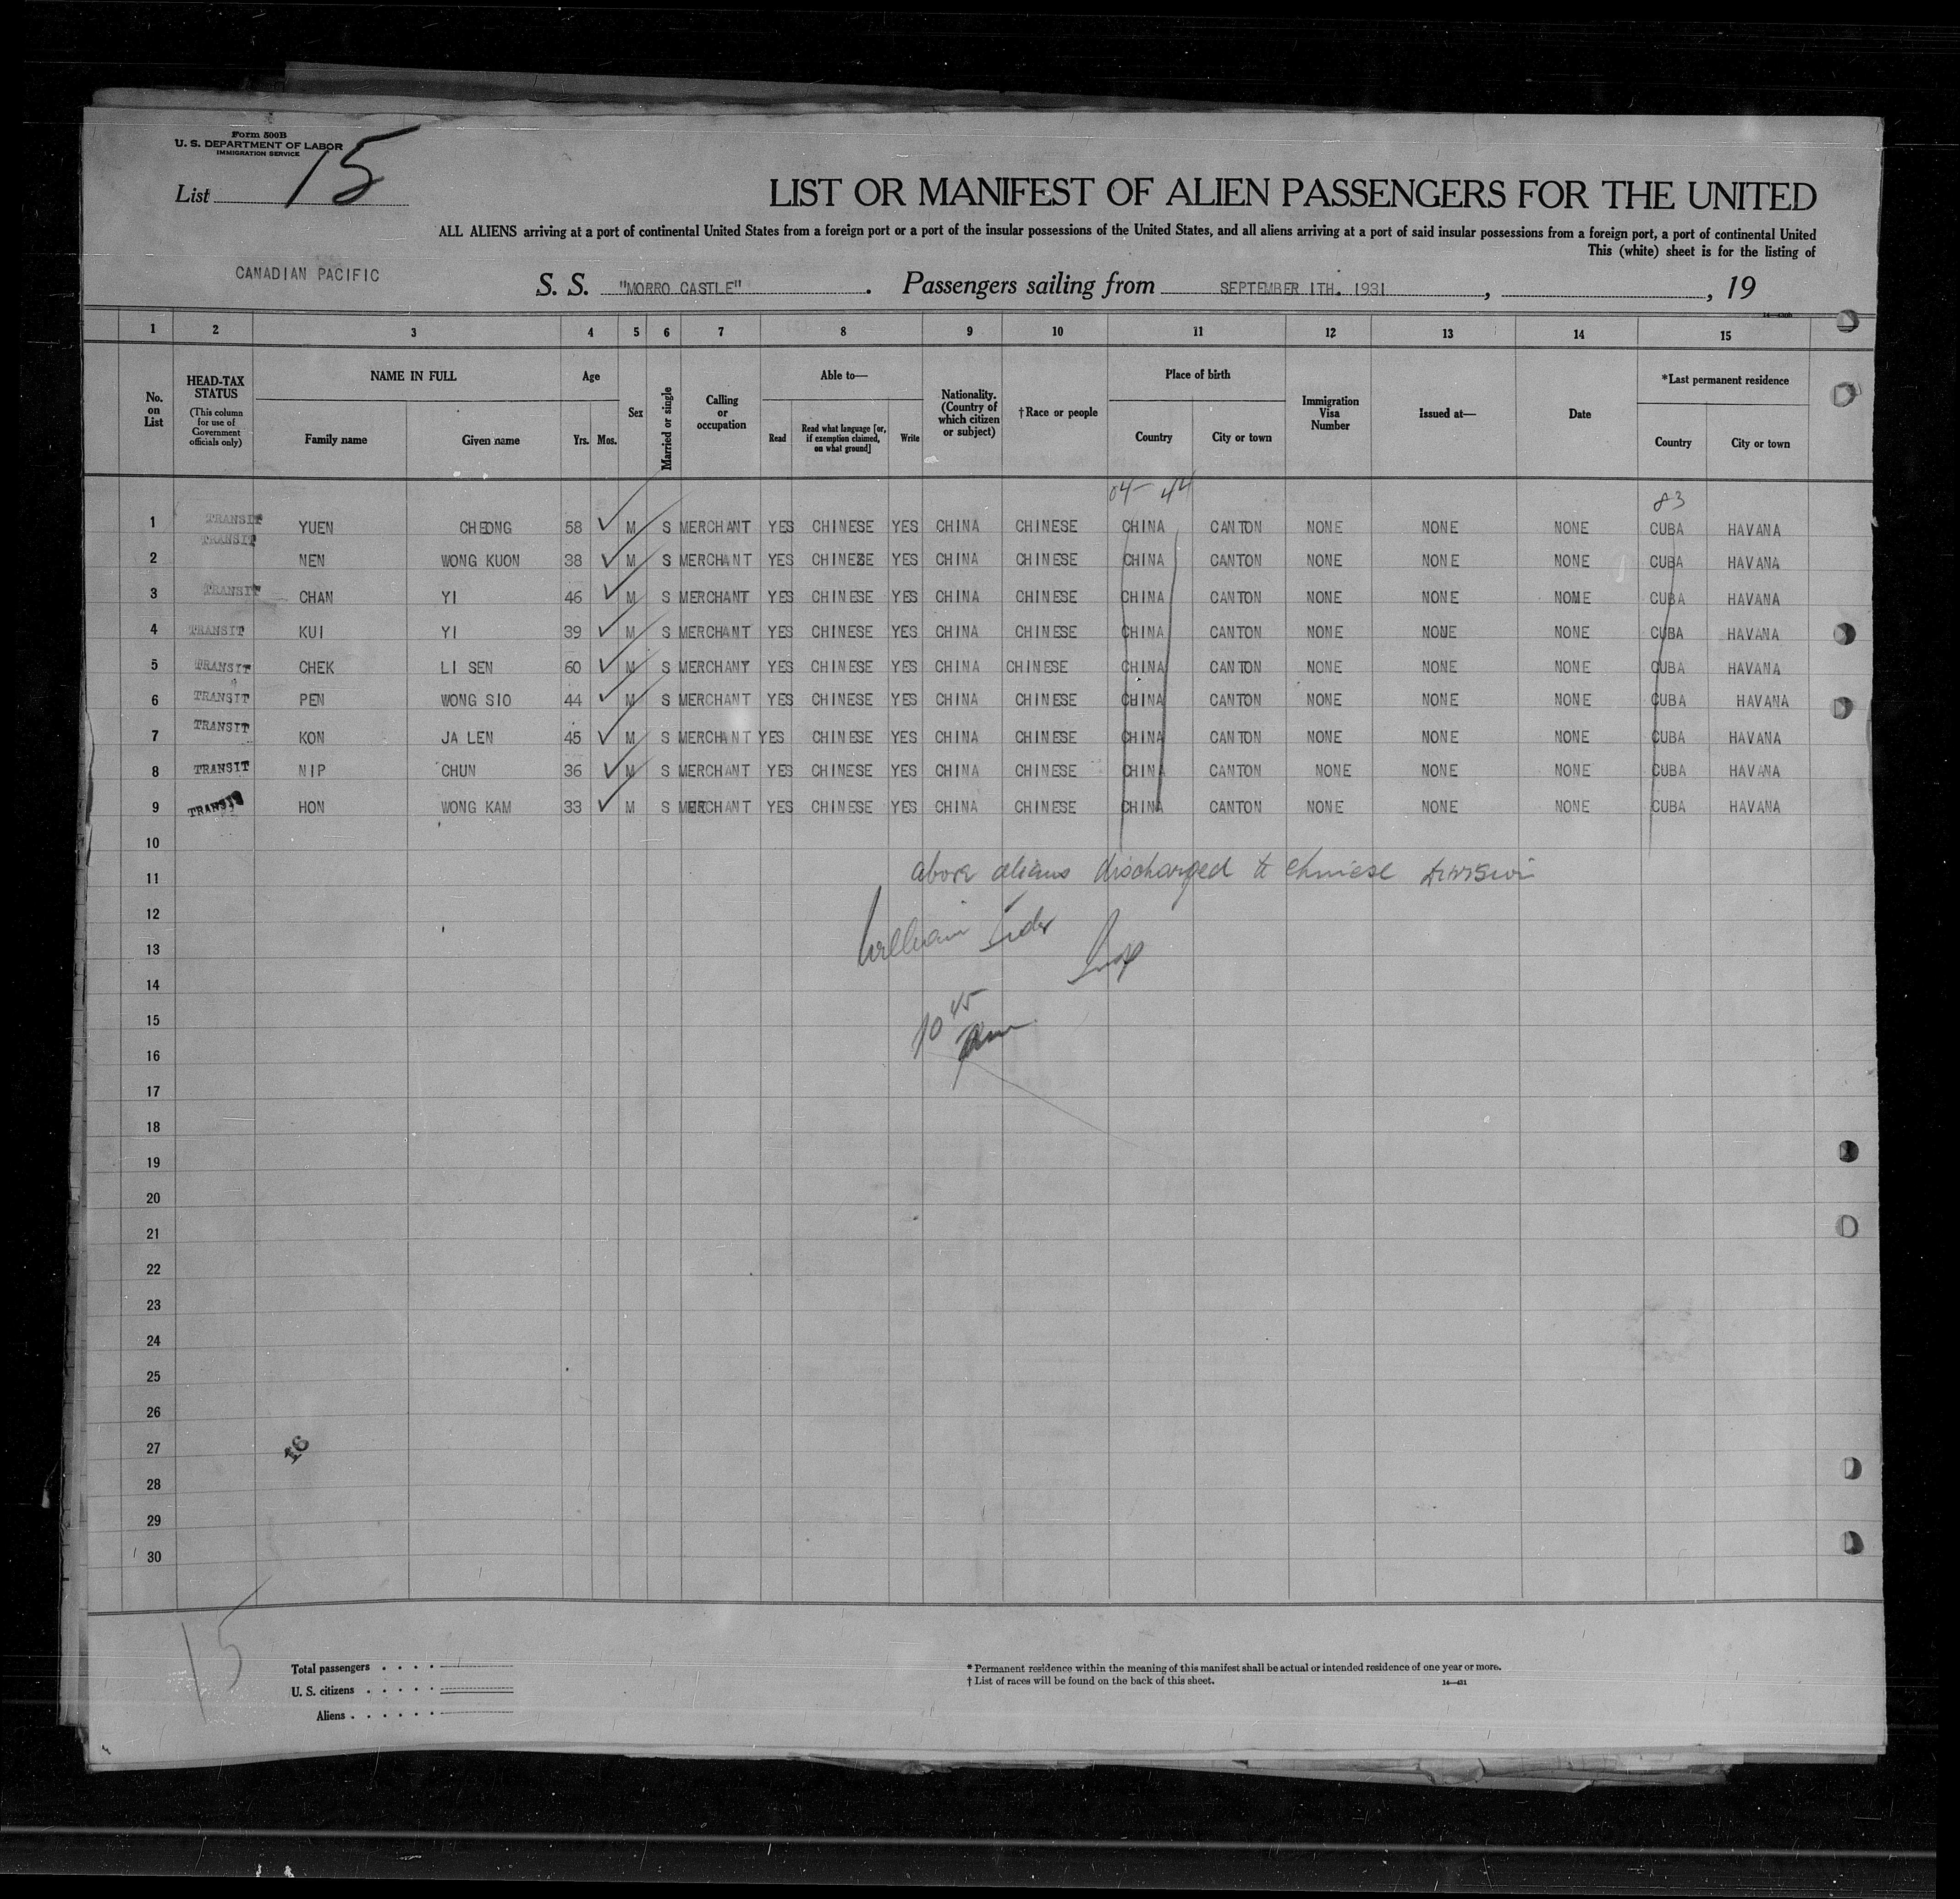 Form 500B
U. S. DEPARTMENT OF LABOR
IMMIGRATION SERVICE
List 15
LIST OR MANIFEST OF ALIEN PASSENGERS FOR THE UNITED
ALL ALIENS arriving at a port of continental United States from a foreign port or a port of the insular possessions of the United States, and all aliens arriving at a port of said insular possessions from a foreign port, a port of continental United
This (white) sheet is for the listing of
CANADIAN PACIFIC
S. S. "MORRO CASTLE". Passengers sailing from SEPTEMBER 1TH. 1931, , 19
1 2 3 4 5 6 7 8 9 10 11 12 13 14 15
No. on List
HEAD-TAX STATUS (This column for use of Government officials only)
NAME IN FULL Family name Given name
Age Yrs. Mos.
Sex
Married or single
Calling or occupation
Able to— Read Read what language [or, if exemption claimed, on what ground] Write
Nationality. (Country of which citizen or subject)
†Race or people
Place of birth Country City or town
Immigration Visa Number
Issued at—
Date
*Last permanent residence Country City or town
04- 44 83
1 TRANSIT YUEN CHEONG 58 M S MERCHANT YES CHINESE YES CHINA CHINESE CHINA CANTON NONE NONE NONE CUBA HAVANA
2 TRANSIT NEN WONG KUON 38 M S MERCHANT YES CHINESE YES CHINA CHINESE CHINA CANTON NONE NONE NONE CUBA HAVANA
3 TRANSIT CHAN YI 46 M S MERCHANT YES CHINESE YES CHINA CHINESE CHINA CANTON NONE NONE NOME CUBA HAVANA
4 TRANSIT KUI YI 39 M S MERCHANT YES CHINESE YES CHINA CHINESE CHINA CANTON NONE NONE NONE CUBA HAVANA
5 TRANSIT CHEK LI SEN 60 M S MERCHANT YES CHINESE YES CHINA CHINESE CHINA CANTON NONE NONE NONE CUBA HAVANA
6 TRANSIT PEN WONG SIO 44 M S MERCHANT YES CHINESE YES CHINA CHINESE CHINA CANTON NONE NONE NONE CUBA HAVANA
7 TRANSIT KON JA LEN 45 M S MERCHANT YES CHINESE YES CHINA CHINESE CHINA CANTON NONE NONE NONE CUBA HAVANA
8 TRANSIT NIP CHUN 36 M S MERCHANT YES CHINESE YES CHINA CHINESE CHINA CANTON NONE NONE NONE CUBA HAVANA
9 TRANSIT HON WONG KAM 33 M S MERCHANT YES CHINESE YES CHINA CHINESE CHINA CANTON NONE NONE NONE CUBA HAVANA
10
11 above aliens discharged to Chinese Division
12
13 William
14 Insp
15
16 10 45
17
18
19
20
21
22
23
24
25
26
27 16
28
29
30
15
Total passengers
U. S. citizens
Aliens
* Permanent residence within the meaning of this manifest shall be actual or intended residence of one year or more.
† List of races will be found on the back of this sheet.
14—431